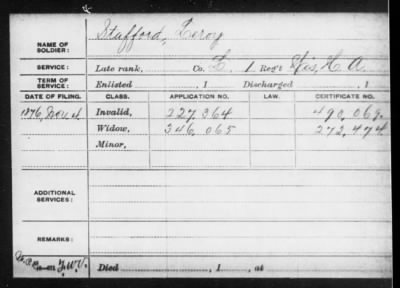 NAME OF SOLDIER: Stafford, Leroy
SERVICE: Late rank, Co. L. 1 Reg't Wis, H. A.
TERM OF SERVICE: Enlisted , 1 Discharged , 1
DATE OF FILING. CLASS. APPLICATION NO. LAW. CERTIFICATE NO.
1876, Nov. Invalid, 227,364 490,069.
Widow, 346,065 272,474
Minor,
ADDITIONAL SERVICES:
REMARKS:
Died , 1 , at